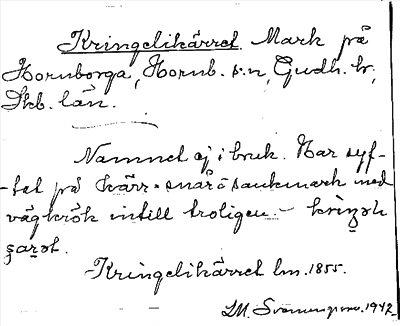 Kringelikärret Mark på
Hornborga, Hornb. s:n, Gudh. hr,
Skb. län.
Namnet ej i bruk. Har syf-
-tat på kärr- o sankmark med
vägkrök intill troligen. -
Kringelikärret lm. 1855.
LM. Svenungsson. 1942.